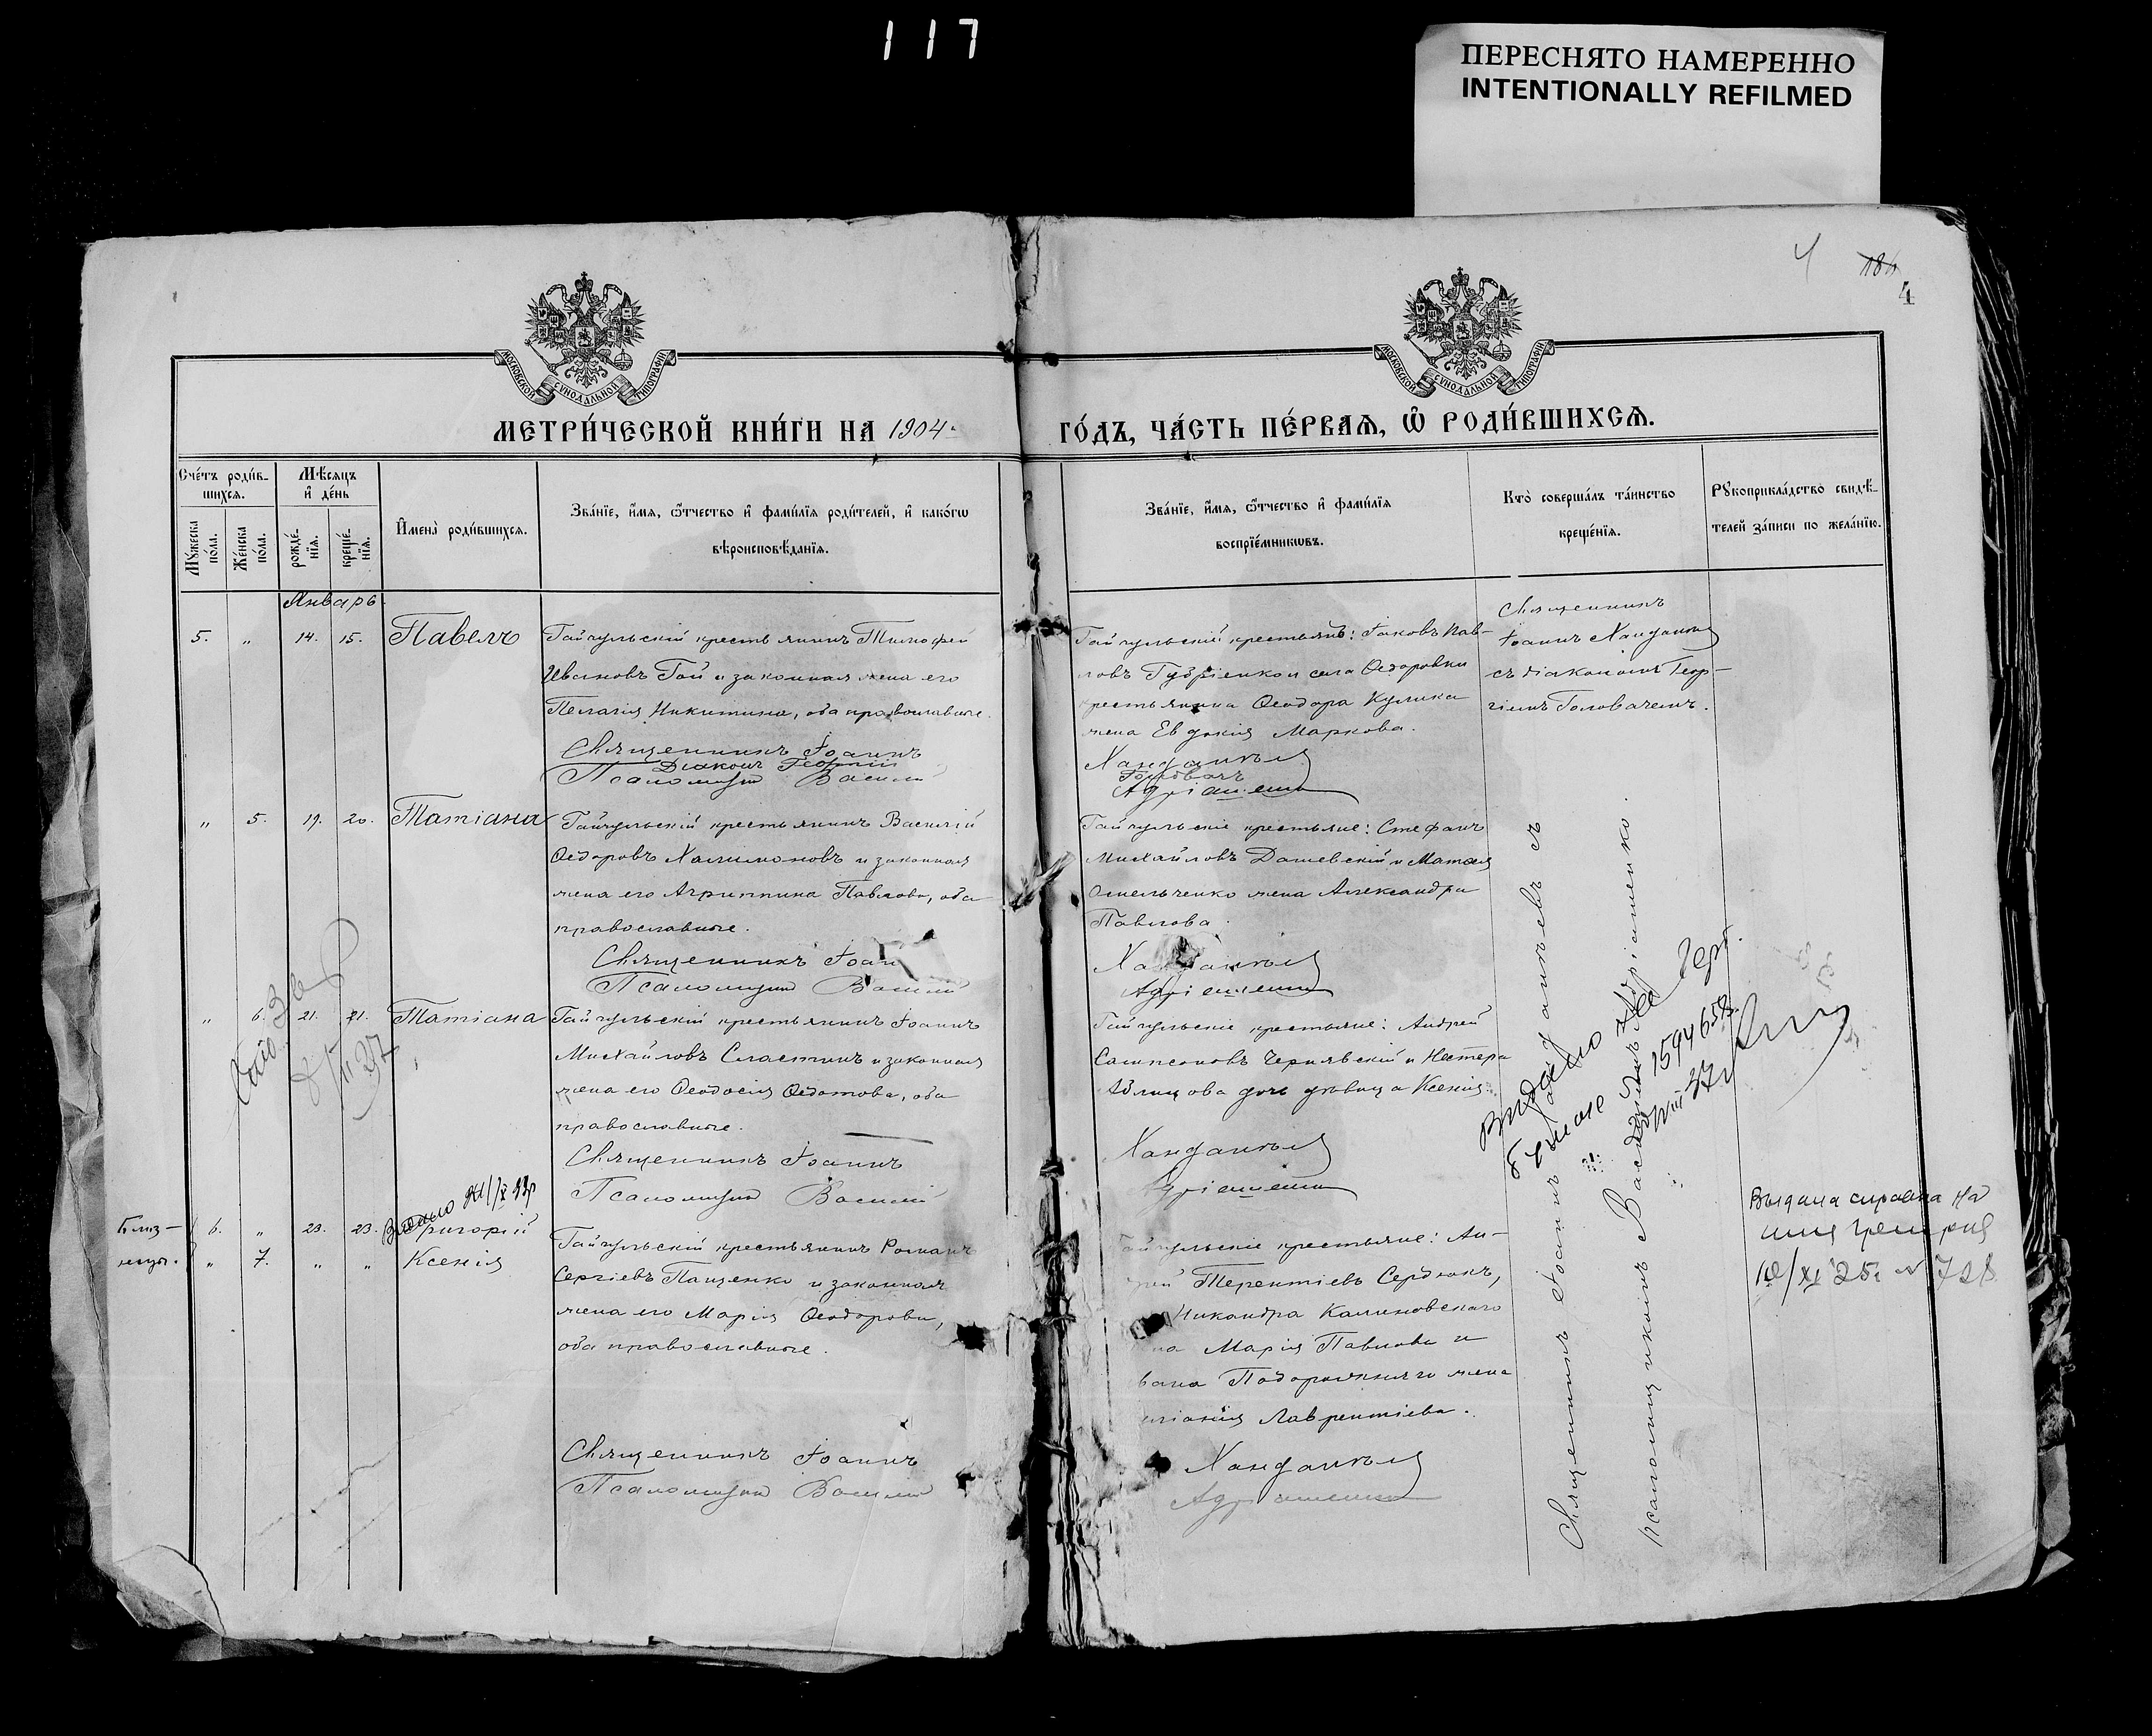 117
ПЕРЕСНЯТО НАМЕРЕННО
INTENTIONALLY REFILMED
4
4
МОСКОВСКОЙ СУНОДАЛЬНОЙ ТИПОГРАФІИ
МОСКОВСКОЙ СУНОДАЛЬНОЙ ТИПОГРАФІИ
МЕТРИ́ЧЕСКОЙ КНИ́ГИ НА 1904
ГО́ДЪ, ЧА́СТЬ ПЕ́РВАѦ, Ѡ҆ РОДИ́ВШИХСѦ.
Сче́тъ роди́в-
шихсѧ.
Мѣсѧцъ
и҆ де́нь
Мꙋжеска
по́ла.
Же́нска
по́ла.
рожде́-
нїѧ.
креще́-
нїѧ.
И҆мена̀ роди́вшихсѧ.
Зва́нїе, и҆́мѧ, ѻ҆́тчество и҆ фами́лїѧ роди́телей, и҆ како́гѡ
вѣроисповѣ́данїѧ.
Зва́нїе, и҆́мѧ, ѻ҆́тчество и҆ фами́лїѧ
воспрїе́мникѡвъ.
Кто̀ соверша́лъ та́инство
креще́нїѧ.
Рꙋкоприкла́дство свидѣ́-
телей за́писи по жела́нїю.
Январь
5. „ 14. 15. Павелъ
Гайчульскій крестьянинъ Тимофей
Ивановъ Гой и законная жена его
Пелагія Никитина, оба православные.
Священникъ Іоаннъ
Діаконъ Георгій
Псаломщик Василий
Гайчульскій крестьян: Іаковъ Пав-
ловъ Гудріенко и села Ѳедоровки
крестьянина Ѳеодора Кулика
жена Евдокия Маркова.
Ханданѣев
Головачъ
Адріашенко
Священникъ
Іоаннъ Ханданѣев
съ діакономъ Геор-
гіемъ Головачемъ.
„ 5. 19. 20. Татіана
Гайчульскій крестьянинъ Василій
Ѳедоровъ Халимоновъ и законная
жена его Агриппина Павлова, оба
православные.
Священникъ Іоан
Псаломщик Василий
Гайчульскіе крестьяне: Стефанъ
Михайловъ Дашевскій и Матвея
Омельченко жена Александра
Павлова.
Ханданѣев
Адріашенко
„ 6. 21. 21. Татіана
Гайчульскій крестьянинъ Іоаннъ
Михайловъ Сластинъ и законная
жена его Ѳеодосія Ѳедотова, оба
православные.
Священникъ Іоаннъ
Псаломщик Василий
Гайчульскіе крестьяне: Андрей
Сампсоновъ Чернявскій и Нестера
дочь девица Ксенія.
Ханданѣев
Адріашенко
Близ-
нецы.
6. „ 23. 23. Григорій
„ 7. „ „ Ксенія
Гайчульскій крестьянинъ Романъ
Сергіевъ Пащенко и законная
жена его Марія Ѳеодорова,
оба православные.
Священникъ Іоаннъ
Псаломщик Василий
крестьяне: Ан-
Терентіевъ Сердюкъ,
Никандра Калиновскаго
Марія Павлова и
Подорожняго жена
Лаврентіева.
Ханданѣев
Адріашенко
Священникъ Іоаннъ Ханданѣевъ съ
псаломщикомъ Василіемъ Адріашенко.
Выдана справка на
имя Григорія
25г № 728